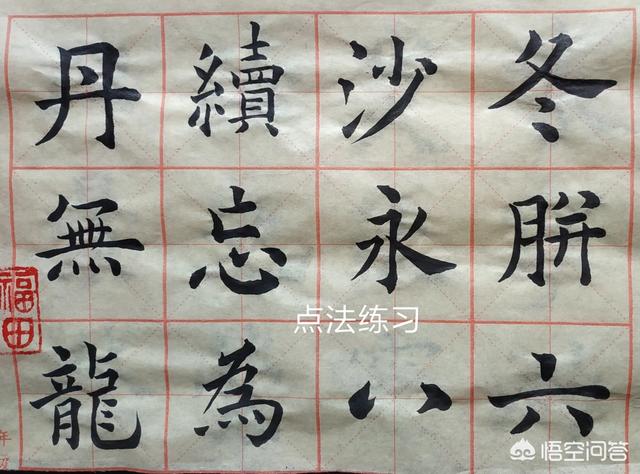 冬胼六
沙永八
續忘為
丹無龍
福田
年
点法练习
悟空问答